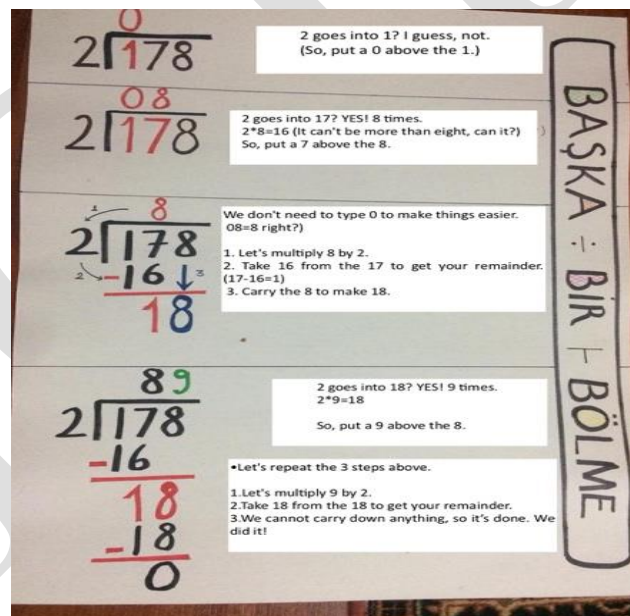 0
2 178
2 goes into 1? I guess, not.
(So, put a 0 above the 1.)
08
2 178
2 goes into 17? YES! 8 times.
2*8=16 (It can't be more than eight, can it?)
So, put a 7 above the 8.
8
2 178
-16
18
1
2
3
We don't need to type 0 to make things easier.
08=8 right?)
1. Let's multiply 8 by 2.
2. Take 16 from the 17 to get your remainder.
(17-16=1)
3. Carry the 8 to make 18.
89
2 178
-16
18
-18
0
2 goes into 18? YES! 9 times.
2*9=18
So, put a 9 above the 8.
•Let's repeat the 3 steps above.
1.Let's multiply 9 by 2.
2.Take 18 from the 18 to get your remainder.
3.We cannot carry down anything, so it's done. We
did it!
BAŞKA ÷ BİR ÷ BÖLME